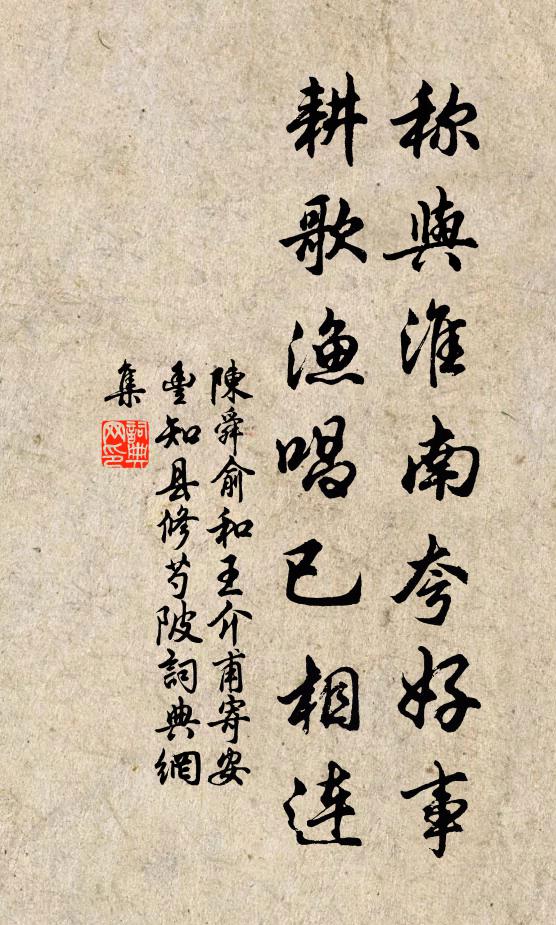 称與淮南夸好事
耕歌漁唱已相連
陳舜俞和王介甫寄安
豐知县修芍陂詞典網
集
詞典网印